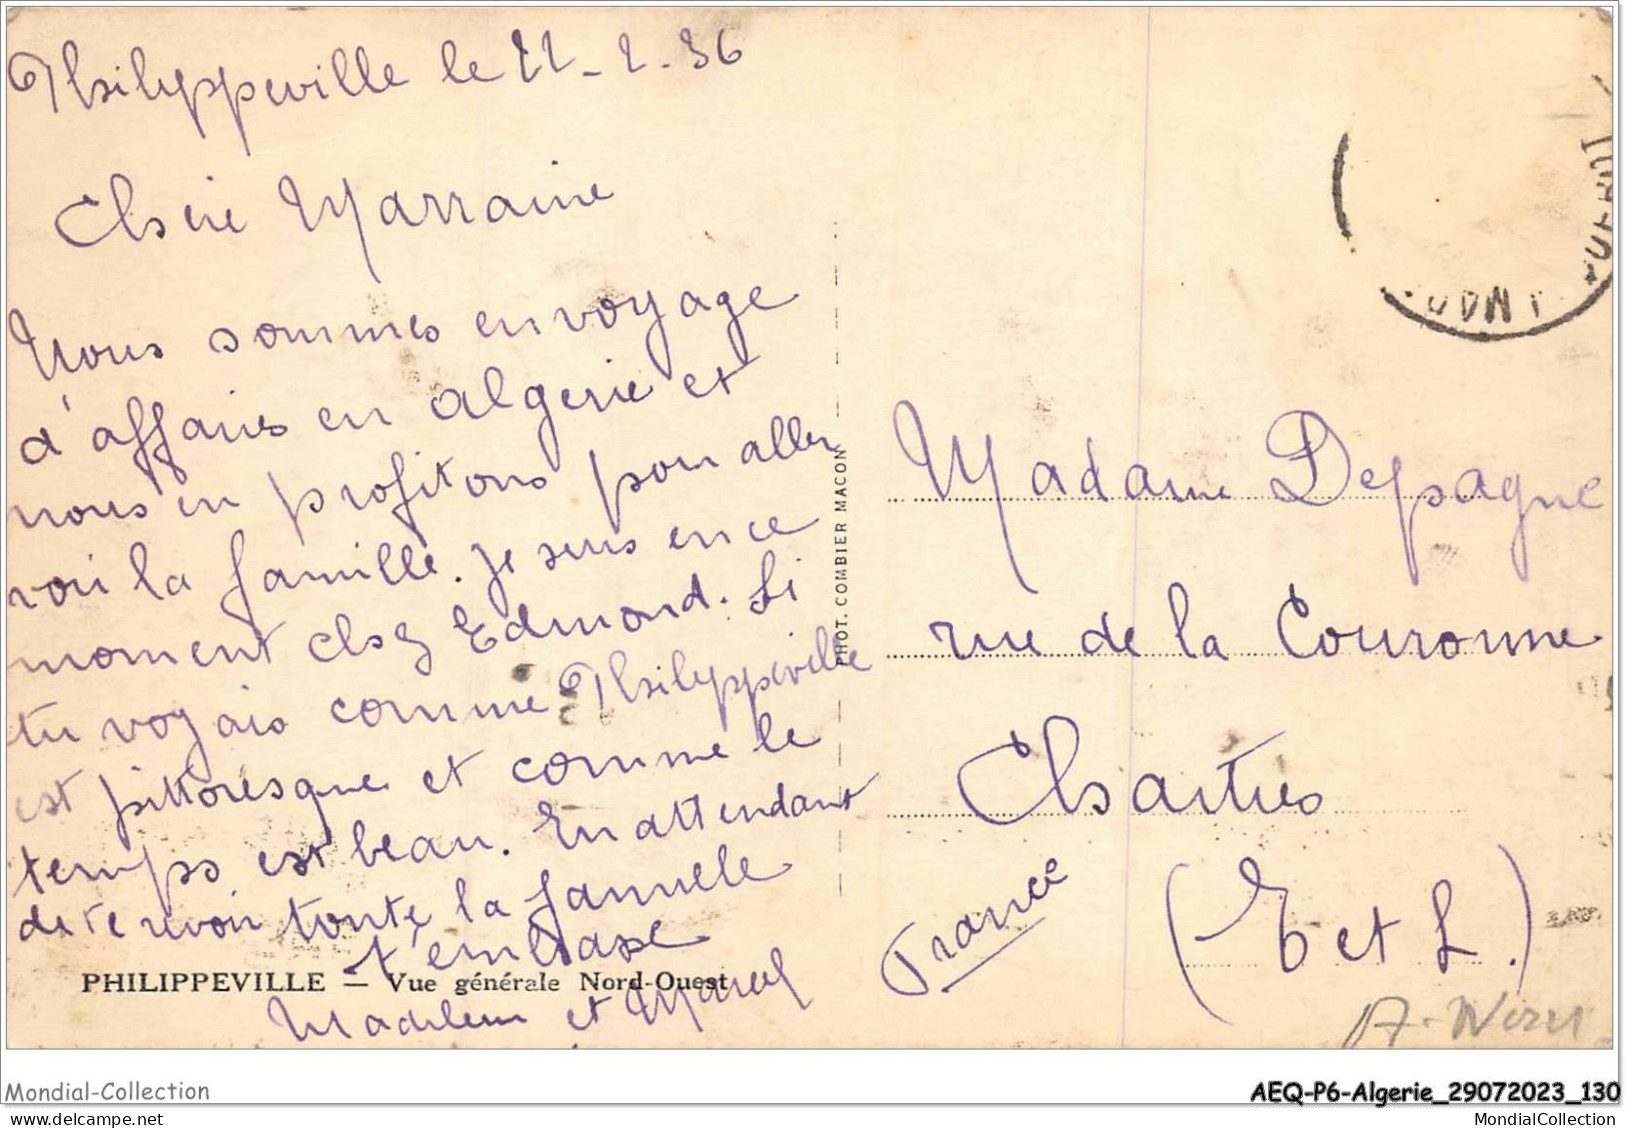 Philippeville le 11-2-36
Chère Marraine
Nous sommes en voyage
d'affaires en algerie et
nous en profitons pour aller
voir la famille. Je suis en ce
moment chez Edmond. Si
tu voyais comme Philippeville
est pittoresque et comme le
temps est beau. En attendant
de te revoir toute la famille
t'embrasse
PHILIPPEVILLE — Vue générale Nord-Ouest
Madeleine et Marcel
PHOT. COMBIER MACON
Madame Depagne
rue de la Couronne
Chartres
(E et L.)
France
Mondial-Collection
AEQ-P6-Algerie_29072023_130
MondialCollection